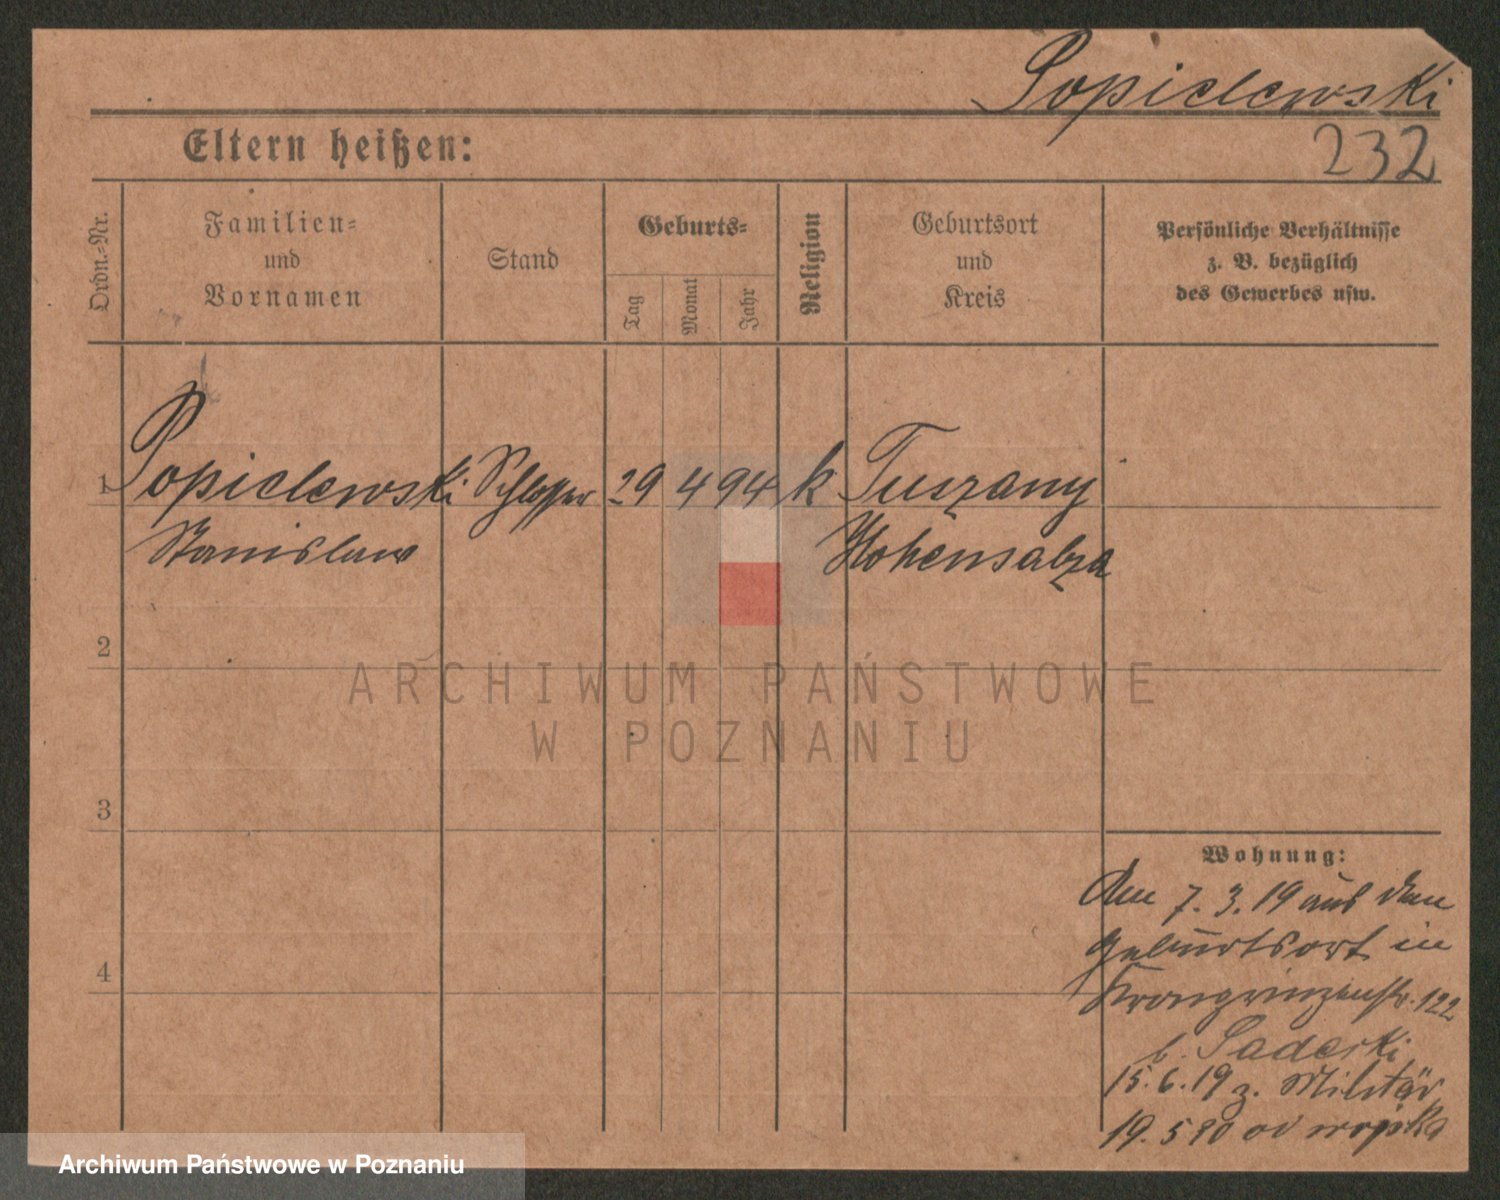 Popielewski
Eltern heißen:
232
Ordn.-Nr.
Familien-
und
Vornamen
Stand
Geburts-
Tag
Monat
Jahr
Religion
Geburtsort
und
Kreis
Persönliche Verhältnisse
z. B. bezüglich
des Gewerbes usw.
1 Popielewski Schlosser 29 4 94 k Tuszany
Stanislaw Hohensalza
2
3
4
Wohnung:
Den 7.3.19 aus dem
Geburtsort in
Kronprinzenstr. 122
b. Saderski
15.6.19 z. Militär
19.5 20 od wojska
ARCHIWUM PAŃSTWOWE
W POZNANIU
Archiwum Państwowe w Poznaniu